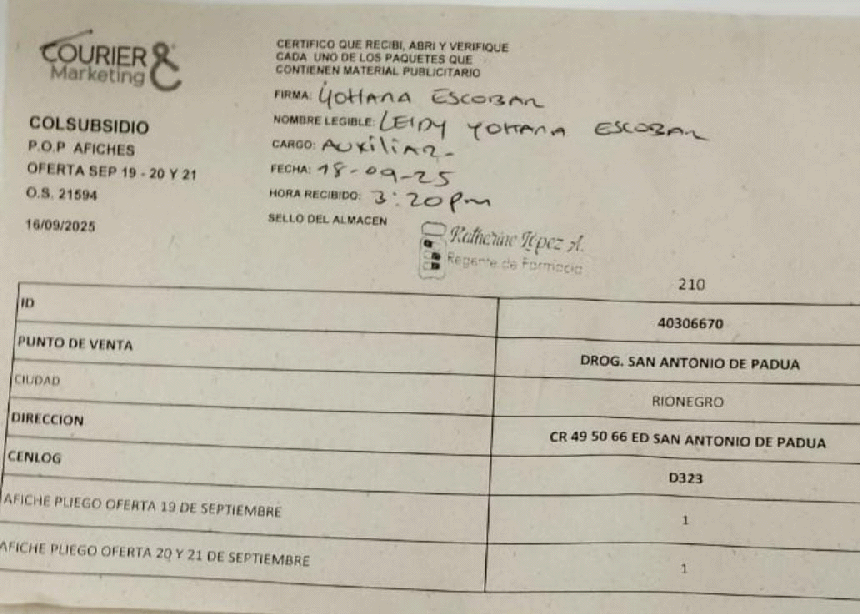 COURIER &
Marketing
COLSUBSIDIO
P.O.P AFICHES
OFERTA SEP 19 - 20 Y 21
O.S. 21594
16/09/2025
CERTIFICO QUE RECIBI, ABRI Y VERIFIQUE
CADA UNO DE LOS PAQUETES QUE
CONTIENEN MATERIAL PUBLICITARIO
FIRMA: YOHANA ESCOBAR
NOMBRE LEGIBLE: LEIDY YOHANA ESCOBAR
CARGO: AUXILIAR-
FECHA: 18-09-25
HORA RECIBIDO: 3:20pm
SELLO DEL ALMACEN
Katherine López A.
Regente de Farmacia
210
ID 40306670
PUNTO DE VENTA DROG. SAN ANTONIO DE PADUA
CIUDAD RIONEGRO
DIRECCION CR 49 50 66 ED SAN ANTONIO DE PADUA
CENLOG D323
AFICHE PLIEGO OFERTA 19 DE SEPTIEMBRE 1
AFICHE PLIEGO OFERTA 20 Y 21 DE SEPTIEMBRE 1